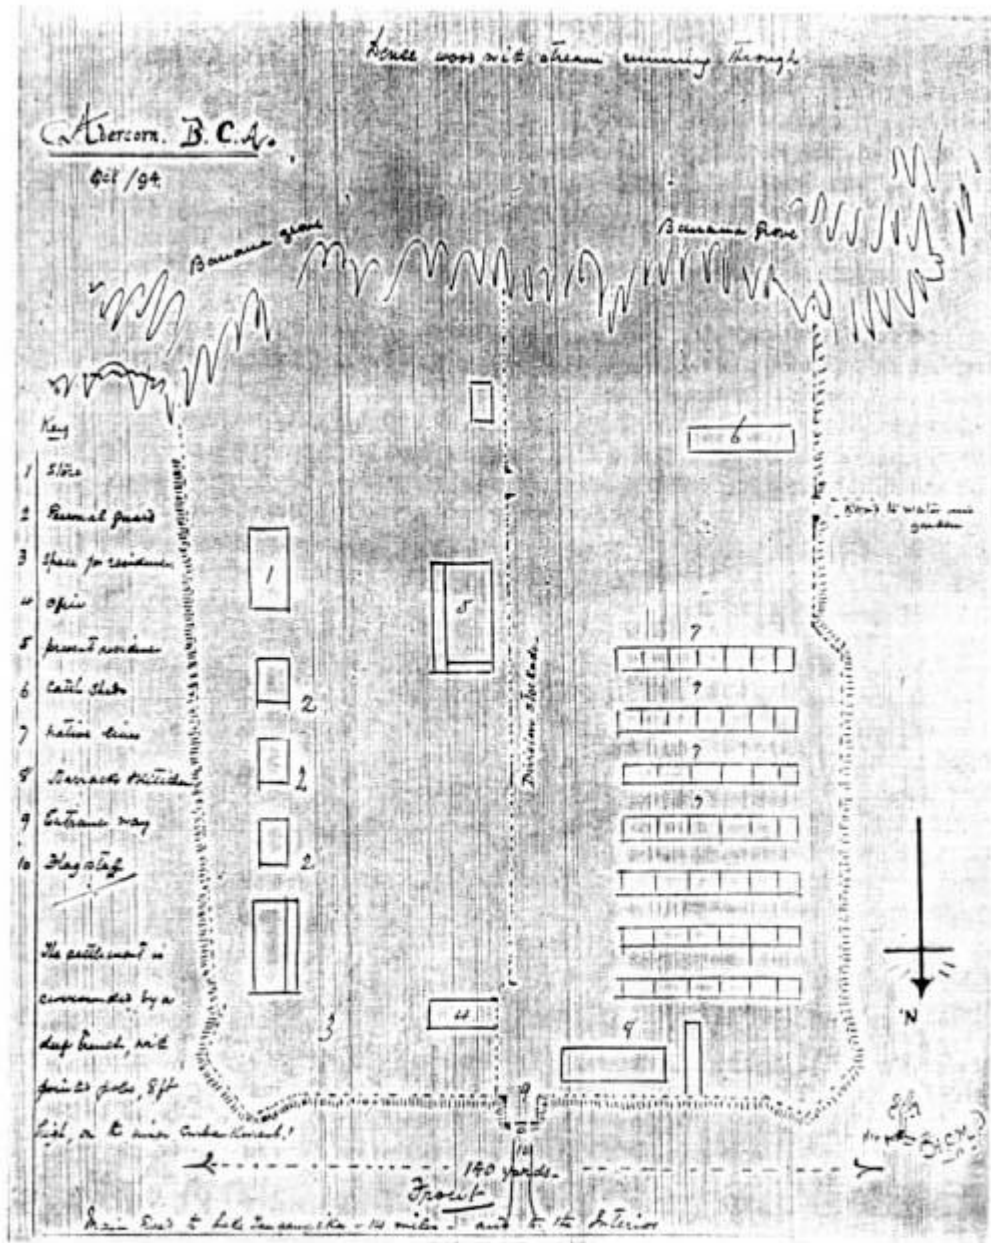 Dense wood with stream running through
Abercorn. B.C.A.
/94
Banana grove
Banana Grove
Key
1 Store
2 Personal guard
3 Space for residence
4 Office
5 present residence
6 Cattle sheds
7 Native lines
8 Barracks
9 Entrance way
10 Flagstaff
The settlement is
surrounded by a
deep trench, with
pointed poles, 8 ft
high, on the inner embankment.
6
Road to water
garden
1
5
7
2
7
Division stockade
2
7
7
2
4
3
8
9
N
10
140 yards.
Front
Main Road to Lake Tanganyika - 14 miles - and to the Interior